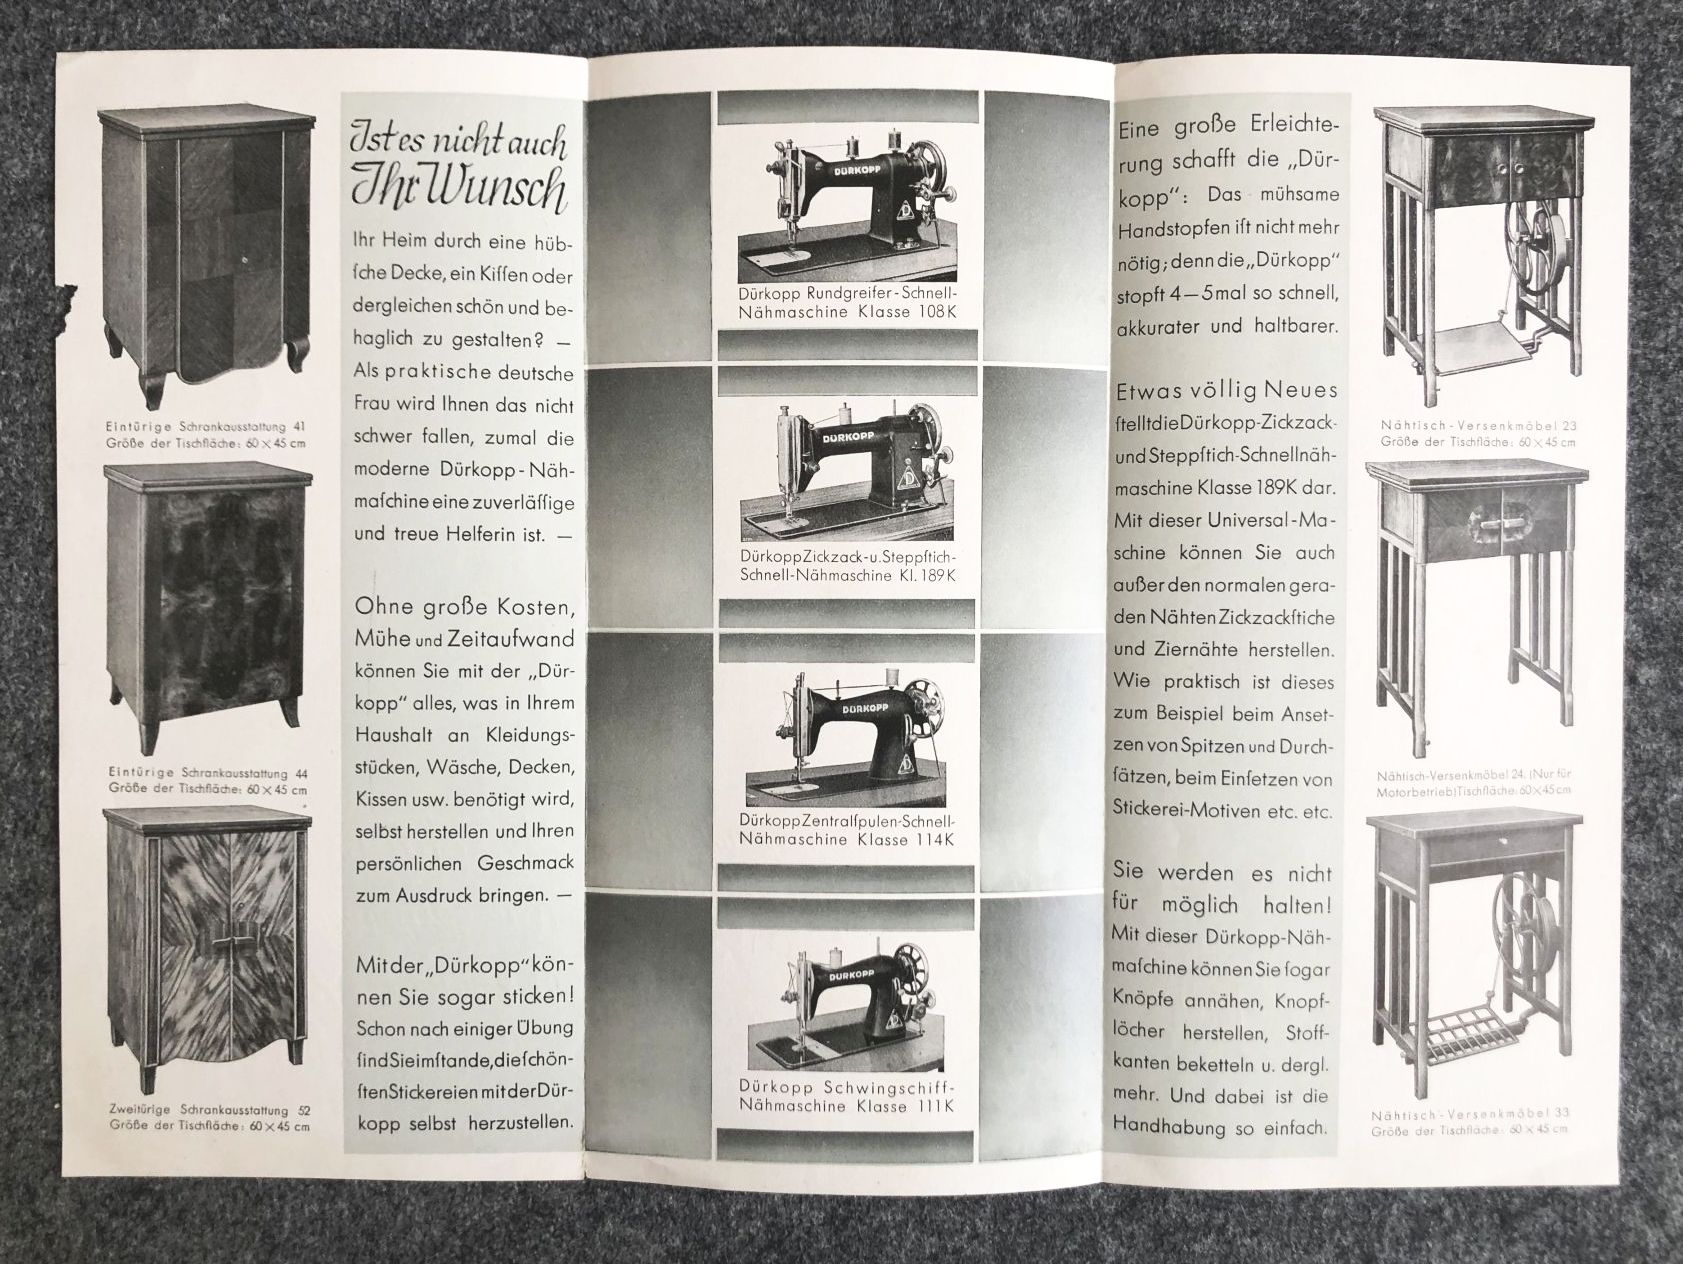 Eintürige Schrankausstattung 41
Größe der Tischfläche: 60 × 45 cm
Eintürige Schrankausstattung 44
Größe der Tischfläche: 60 × 45 cm
Zweitürige Schrankausstattung 52
Größe der Tischfläche: 60 × 45 cm
Ist es nicht auch
Ihr Wunsch
Ihr Heim durch eine hüb-
ſche Decke, ein Kiſſen oder
dergleichen schön und be-
haglich zu gestalten? —
Als praktische deutsche
Frau wird Ihnen das nicht
schwer fallen, zumal die
moderne Dürkopp-Näh-
maſchine eine zuverläſſige
und treue Helferin ist. —
Ohne große Kosten,
Mühe und Zeitaufwand
können Sie mit der „Dür-
kopp“ alles, was in Ihrem
Haushalt an Kleidungs-
stücken, Wäsche, Decken,
Kissen usw. benötigt wird,
selbst herstellen und Ihren
persönlichen Geschmack
zum Ausdruck bringen. —
Mit der „Dürkopp“ kön-
nen Sie sogar sticken!
Schon nach einiger Übung
ſind Sie imſtande, die ſchön-
ſten Stickereien mit der Dür-
kopp selbst herzustellen.
DÜRKOPP
D
Dürkopp Rundgreifer-Schnell-
Nähmaschine Klasse 108K
DÜRKOPP
D
Dürkopp Zickzack- u. Steppſtich-
Schnell-Nähmaschine Kl. 189K
DÜRKOPP
D
Dürkopp Zentralſpulen-Schnell-
Nähmaschine Klasse 114K
DÜRKOPP
D
Dürkopp Schwingschiff-
Nähmaschine Klasse 111K
Eine große Erleichte-
rung schafft die „Dür-
kopp“: Das mühsame
Handstopfen iſt nicht mehr
nötig; denn die „Dürkopp“
stopft 4—5mal so schnell,
akkurater und haltbarer.
Etwas völlig Neues
ſtellt die Dürkopp-Zickzack-
und Steppſtich-Schnellnäh-
maschine Klasse 189K dar.
Mit dieser Universal-Ma-
schine können Sie auch
außer den normalen gera-
den Nähten Zickzackſtiche
und Ziernähte herstellen.
Wie praktisch ist dieses
zum Beispiel beim Anset-
zen von Spitzen und Durch-
ſätzen, beim Einſetzen von
Stickerei-Motiven etc. etc.
Sie werden es nicht
für möglich halten!
Mit dieser Dürkopp-Näh-
maſchine können Sie ſogar
Knöpfe annähen, Knopf-
löcher herstellen, Stoff-
kanten beketteln u. dergl.
mehr. Und dabei ist die
Handhabung so einfach.
Nähtisch-Versenkmöbel 23
Größe der Tischfläche: 60 × 45 cm
Nähtisch-Versenkmöbel 24. (Nur für
Motorbetrieb) Tischfläche: 60 × 45 cm
Nähtisch-Versenkmöbel 33
Größe der Tischfläche: 60 × 45 cm